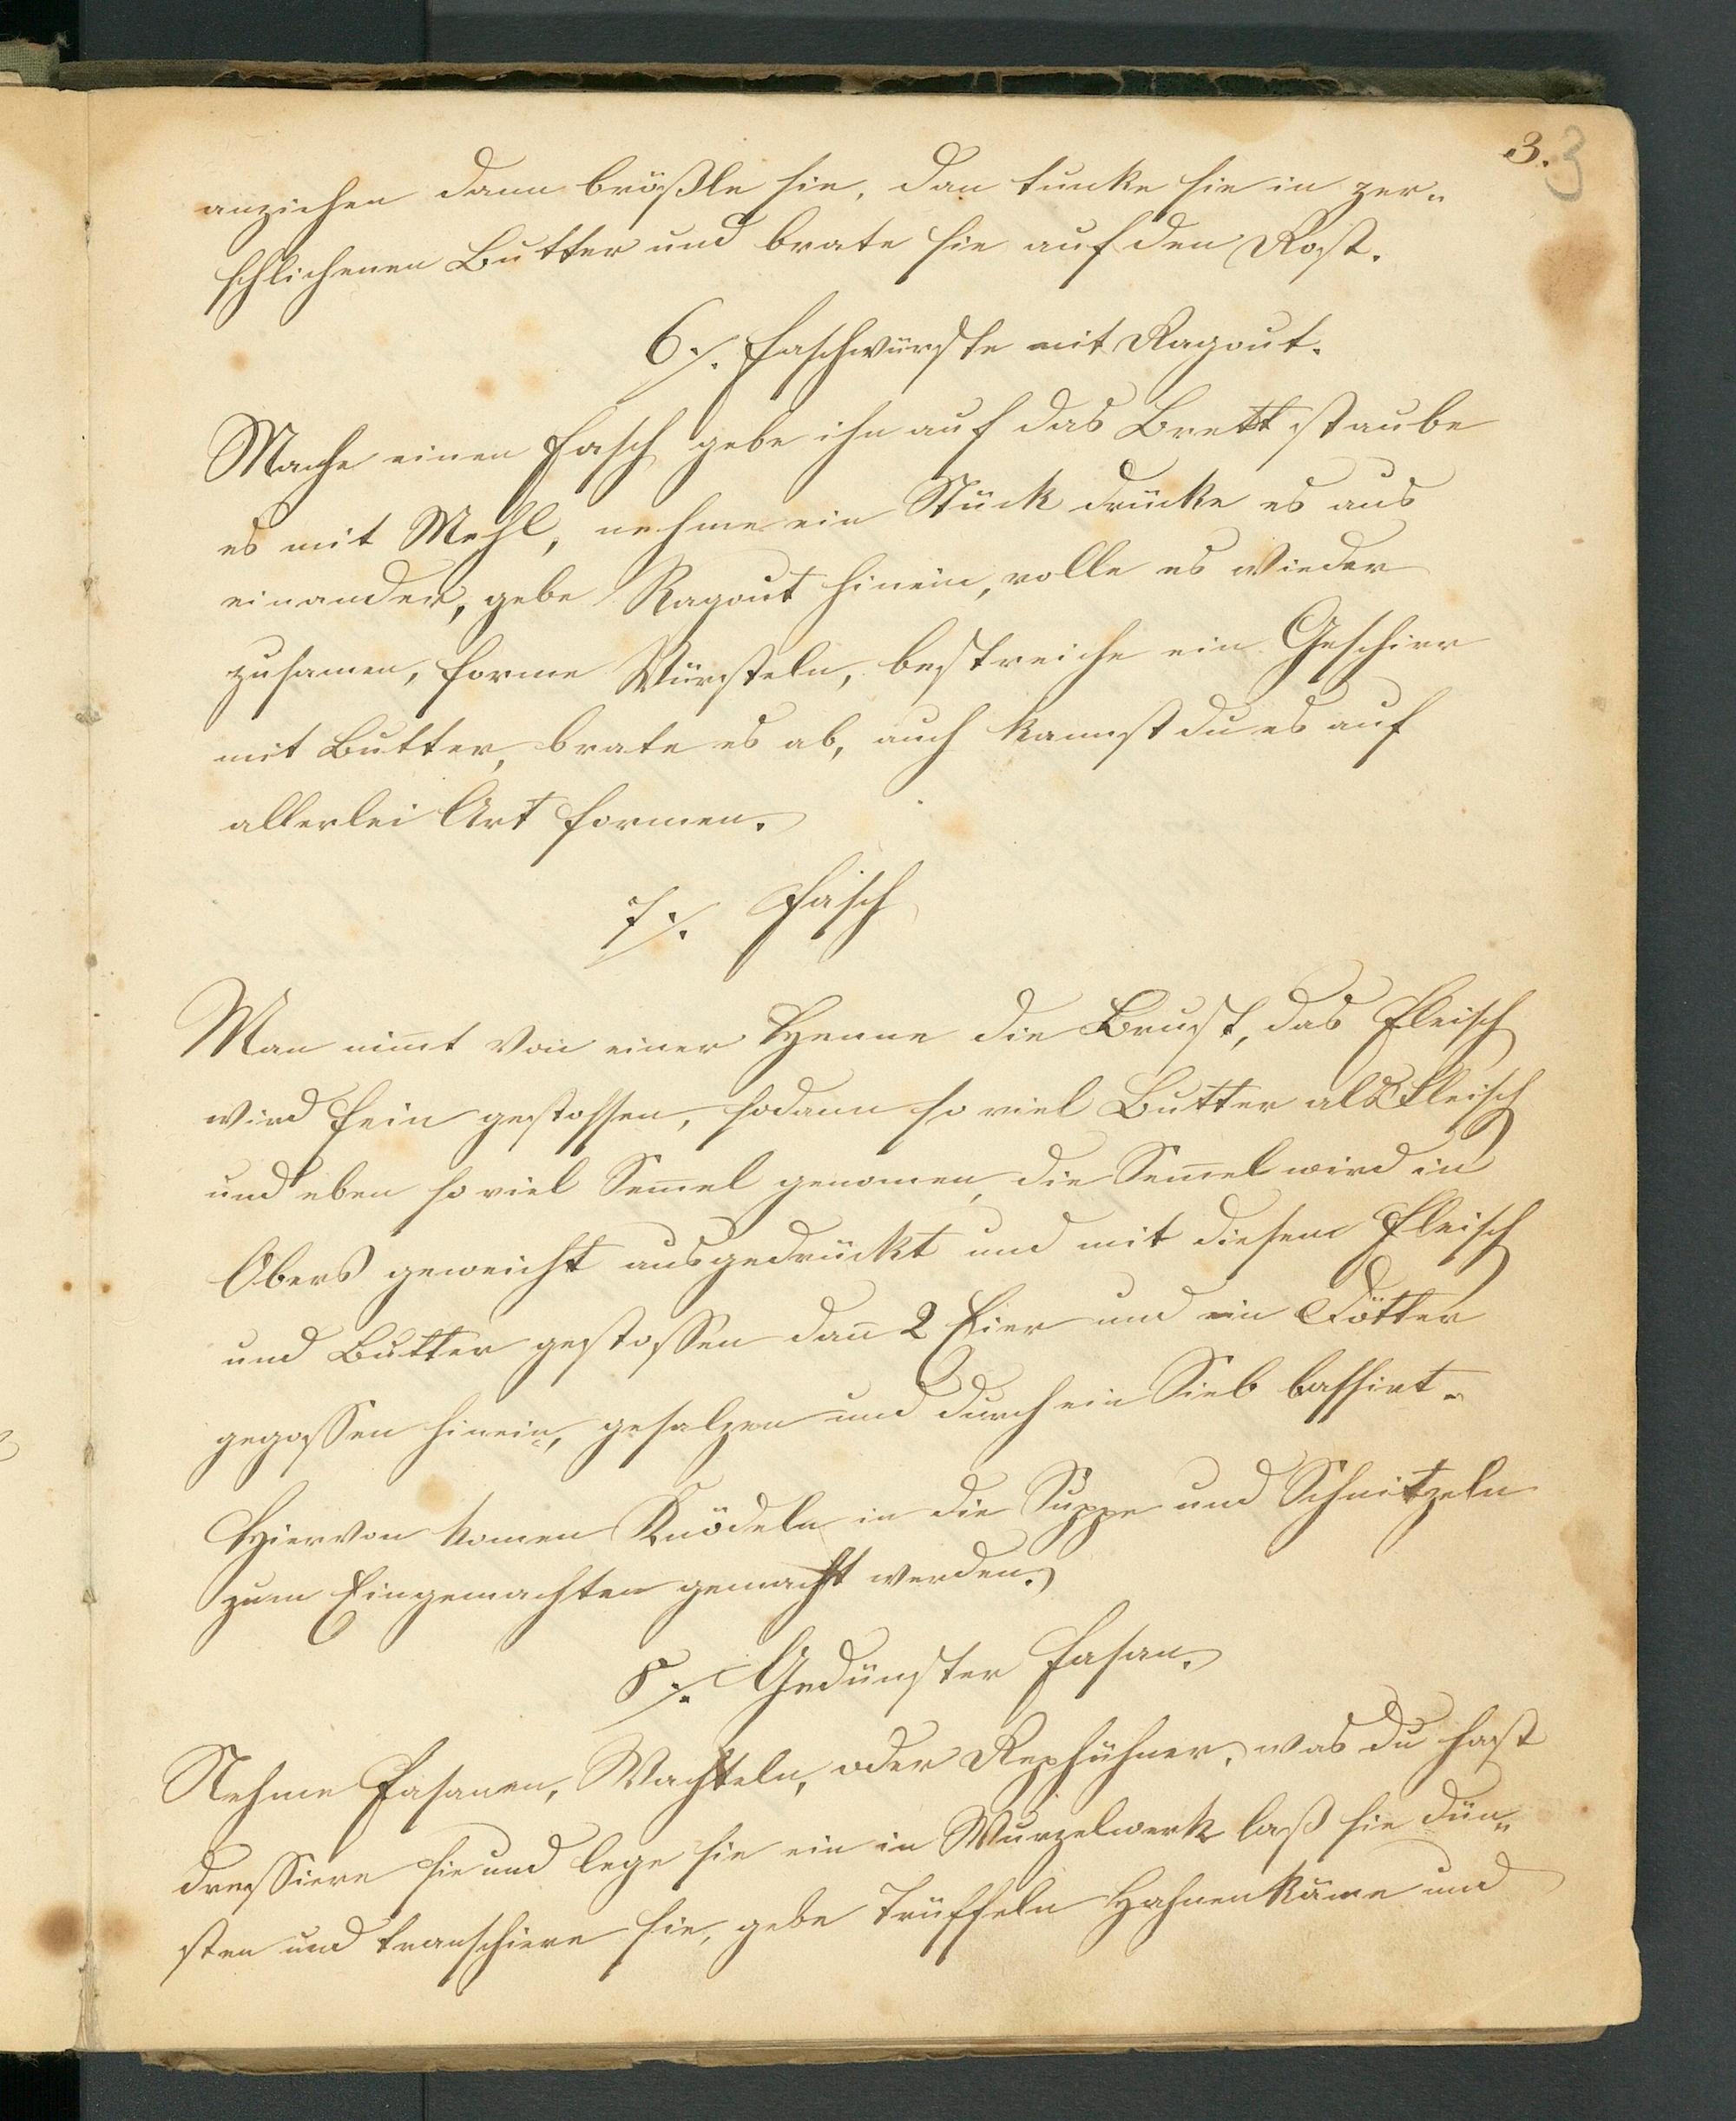 3. 3
anziehen dann brößle sie, dan tunke sie in zer„
schlichenen Butter und brate sie auf den Rost.
6 ·/. Faschwürste mit Ragout.
Mache einen Fasch gebe ihn auf das Brett staube
es mit Mehl, nehme ein Stück drücke es aus
einander, gebe Ragout hinein, rolle es wieder
zusamen, forme Würsteln, bestreiche ein Geschirr
mit Butter, brate es ab, auch kannst du es auf
allerlei Art formen.
7 ·/. Fasch
Man nim̄t von einer Henne die Brust, das Fleisch
wird fein gestossen, sodann so viel Butter als Fleisch
und eben so viel Sem̄el genomen, die Sem̄el wird in
Obers geweicht ausgedrückt und mit diesem Fleisch
und Butter gestossen dan̄ 2 Eier und ein Dötter
gegossen hinein, gesalzen und durch ein Sieb bassirt.
Hiervon könen Knödeln in die Suppe und Schnitzeln
zum Eingemachten gemacht werden.
8 ·/. Gedünster Fasan.
Nehme Fasanen, Wachteln, oder Rephühner, was du hast
dressiere sie und lege sie ein in Wurzelwerk laß sie dün„
sten und transchiere sie, gebe Trüffeln Hahnenkäme und